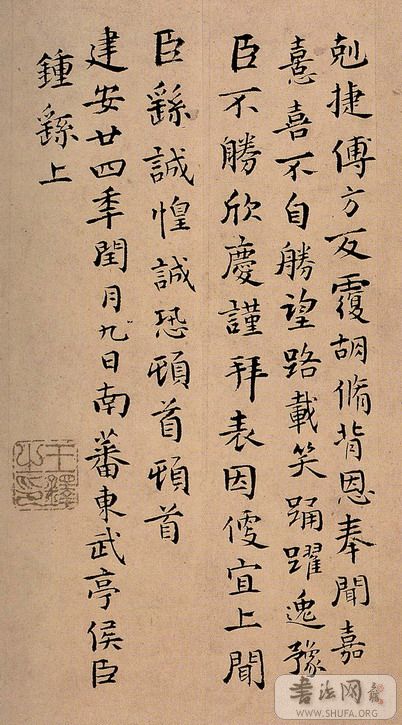 剋捷傅方反覆胡脩背恩奉聞嘉
憙喜不自勝望路載笑踊躍逸豫
臣不勝欣慶謹拜表因便宜上聞
臣繇誠惶誠恐頓首頓首
建安廿四秊閏月九日南蕃東武亭侯臣
鍾繇上
王鐸之印
书法网
WWW.SHUFA.ORG